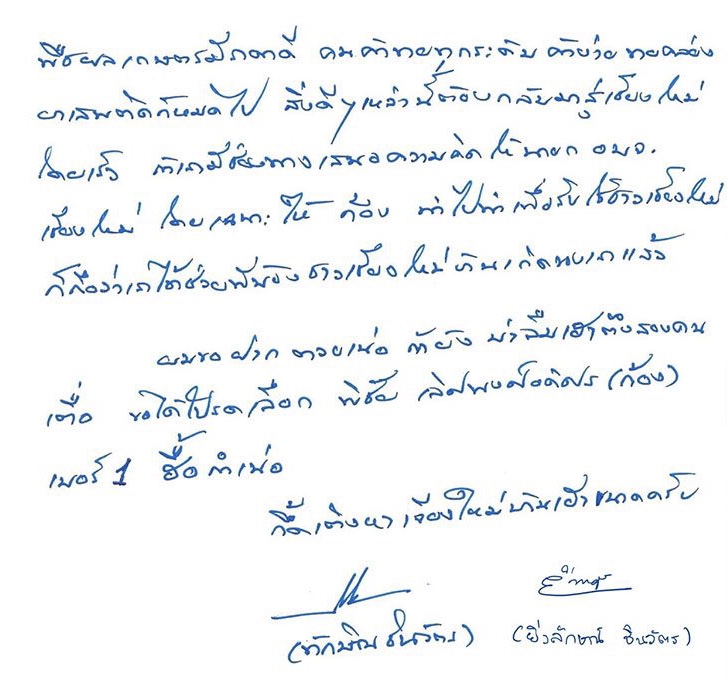 พืชผลเกษตรมีราคาดี คนค้าขายทุกระดับ ค้าง่าย ขายคล่อง
ยาเสพติดก็หมดไป สิ่งดีๆเหล่านี้ต้องกลับมาสู่เชียงใหม่
โดยเร็ว ถ้าเรามีช่องทางเสนอความคิดให้นายก อบจ.
เชียงใหม่ โดยเฉพาะให้ ก้อง นำไปทำเพื่อรับใช้ชาวเชียงใหม่
ก็ถือว่าเราได้ช่วยพี่น้องชาวเชียงใหม่บ้านเกิดของเราแล้ว
ผมขอฝาก ตวยเน่อ ถ้ายัง บ่าลืมเฮาตึงสองคน
เตื้อ ขอได้โปรดเลือก พิชัย เลิศพงศ์อดิศร (ก้อง)
เบอร์ 1 ฮื้อกำเน่อ
กึ๊ดเติงหาเจียงใหม่บ้านเฮาขนาดครับ
(ทักษิณ ชินวัตร) (ยิ่งลักษณ์ ชินวัตร)